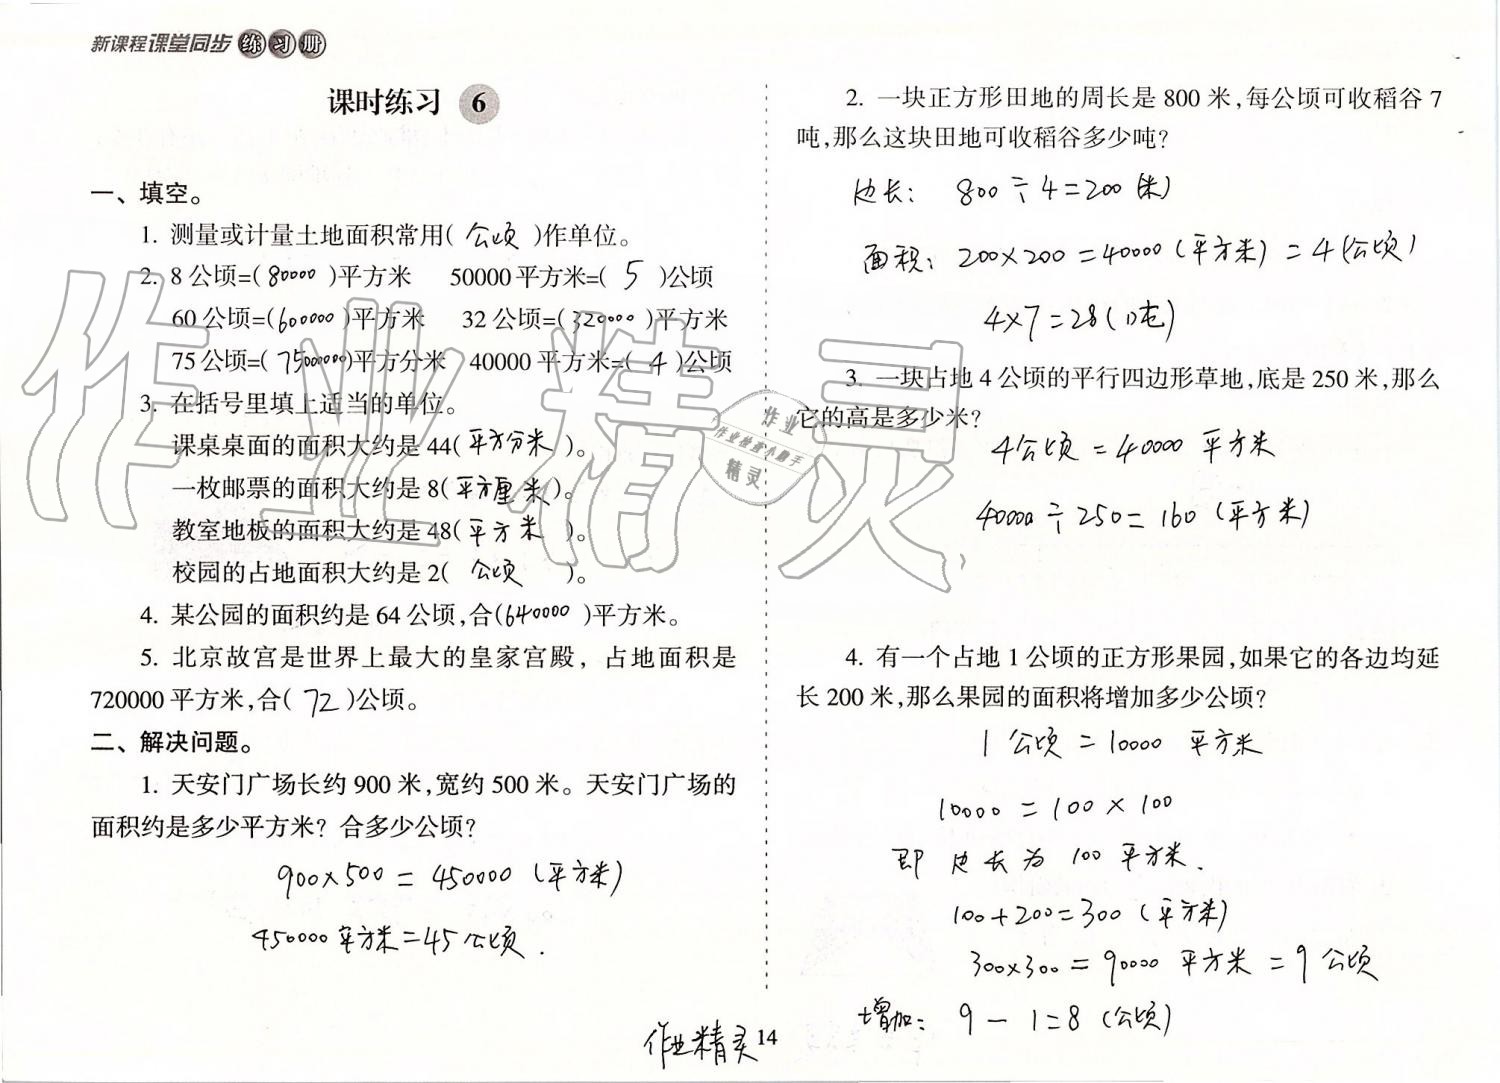 新课程课堂同步练习册
课时练习 6
一、填空。
1. 测量或计量土地面积常用( 公顷 )作单位。
2. 8公顷=( 80000 )平方米 50000平方米=( 5 )公顷
60公顷=( 600000 )平方米 32公顷=( 320000 )平方米
75公顷=( 75000000 )平方分米 40000平方米=( 4 )公顷
3. 在括号里填上适当的单位。
课桌桌面的面积大约是44( 平方分米 )。
一枚邮票的面积大约是8( 平方厘米 )。
教室地板的面积大约是48( 平方米 )。
校园的占地面积大约是2( 公顷 )。
4. 某公园的面积约是64公顷,合( 640000 )平方米。
5. 北京故宫是世界上最大的皇家宫殿, 占地面积是
720000平方米,合( 72 )公顷。
二、解决问题。
1. 天安门广场长约900米,宽约500米。天安门广场的
面积约是多少平方米? 合多少公顷?
900×500=450000(平方米)
450000平方米=45公顷.
2. 一块正方形田地的周长是800米,每公顷可收稻谷7
吨,那么这块田地可收稻谷多少吨?
边长: 800÷4=200(米)
面积: 200×200=40000(平方米)=4(公顷)
4×7=28(吨)
3. 一块占地4公顷的平行四边形草地,底是250米,那么
它的高是多少米?
4公顷=40000平方米
40000÷250=160(平方米)
4. 有一个占地1公顷的正方形果园,如果它的各边均延
长200米,那么果园的面积将增加多少公顷?
1公顷=10000平方米
10000=100×100
即边长为100平方米.
100+200=300(平方米)
300×300=90000平方米=9公顷
增加: 9-1=8(公顷)
作业精灵
14
作业精灵
作业
作业检查小助手
精灵